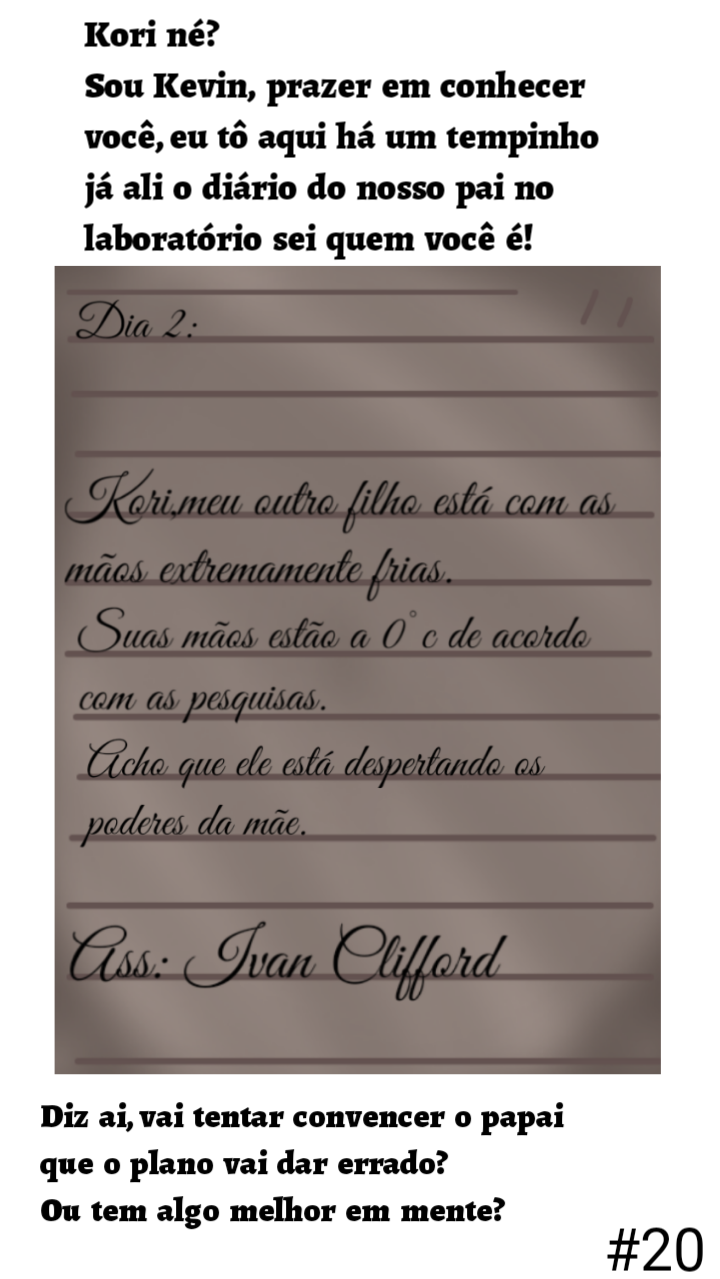 Kori né?
Sou Kevin, prazer em conhecer
você, eu tô aqui há um tempinho
já ali o diário do nosso pai no
laboratório sei quem você é!
Dia 2:
Kori,meu outro filho está com as
mãos extremamente frias.
Suas mãos estão a 0°c de acordo
com as pesquisas.
Acho que ele está despertando os
poderes da mãe.
Ass: Ivan Clifford
Diz ai, vai tentar convencer o papai
que o plano vai dar errado?
Ou tem algo melhor em mente?
#20